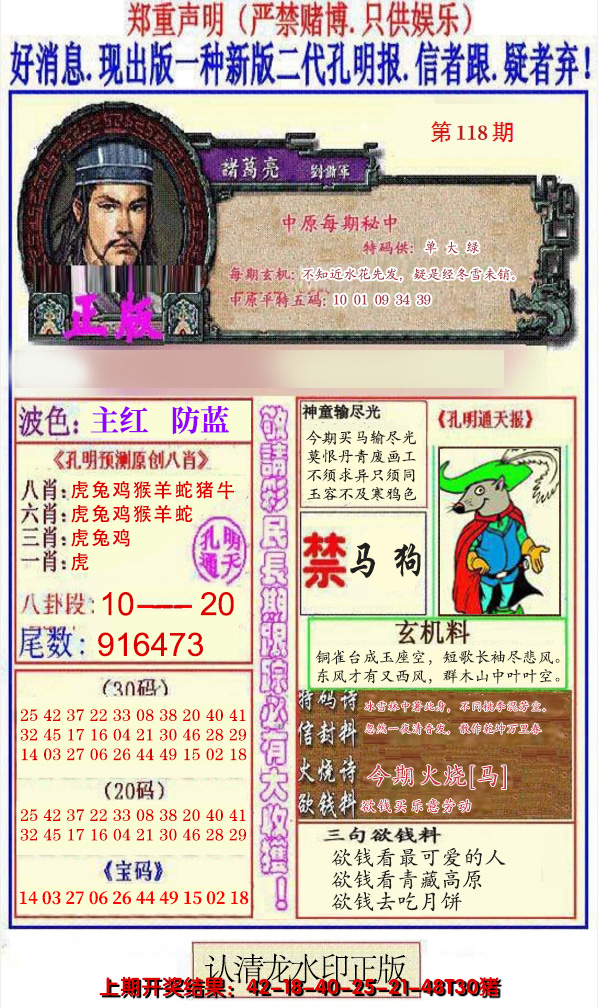 郑重声明（严禁赌博.只供娱乐）
好消息.现出版一种新版二代孔明报.信者跟.疑者弃！
第118期
諸葛亮 劉備軍
中原每期秘中
特码供：单大绿
每期玄机：不知近水花先发，疑是经冬雪未销。
中原平特五码：10 01 09 34 39
正版
波色：主红 防蓝
《孔明预测原创八肖》
八肖：虎兔鸡猴羊蛇猪牛
六肖：虎兔鸡猴羊蛇
三肖：虎兔鸡
一肖：虎
孔明
通天
八卦段：10——20
尾数：916473
（30码）
25 42 37 22 33 08 38 20 40 41
32 45 17 16 04 21 30 46 28 29
14 03 27 06 26 44 49 15 02 18
（20码）
25 42 37 22 33 08 38 20 40 41
32 45 17 16 04 21 30 46 28 29
《宝码》
14 03 27 06 26 44 49 15 02 18
敬請彩民長期跟踪必有大收獲！
神童输尽光
今期买马输尽光
莫恨丹青废画工
不须求异只须同
玉容不及寒鸦色
《孔明通天报》
禁 马 狗
玄机料
铜雀台成玉座空，短歌长袖尽悲风。
东风才有又西风，群木山中叶叶空。
特码诗 冰雪林中著此身，不同桃李混芳尘。
信封料 忽然一夜清香发，散作乾坤万里春
火烧诗 今期火烧[马]
欲钱料 欲钱买乐意劳动
三句欲钱料
欲钱看最可爱的人
欲钱看青藏高原
欲钱去吃月饼
认清龙水印正版
上期开奖结果：42-18-40-25-21-48T30猪